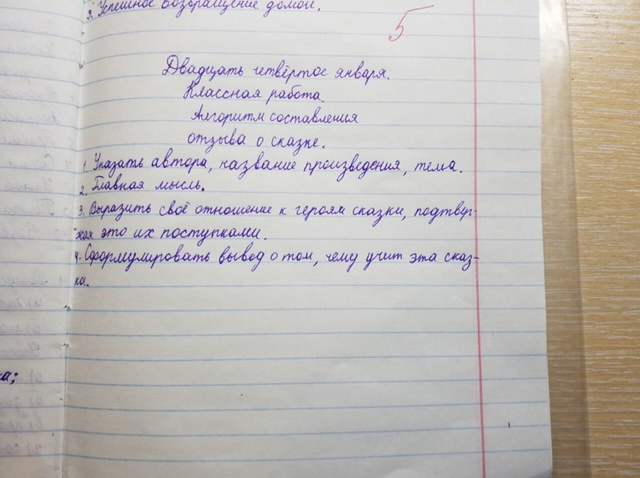 3. Успешное возвращение домой.
5
Двадцать четвёртое января.
Классная работа.
Алгоритм составления
отзыва о сказке.
1. Указать автора, название произведения, тема.
2. Главная мысль.
3. Выразить своё отношение к героям сказки, подтвер-
жая это их поступками.
4. Сформулировать вывод о том, чему учит эта сказ-
ка.